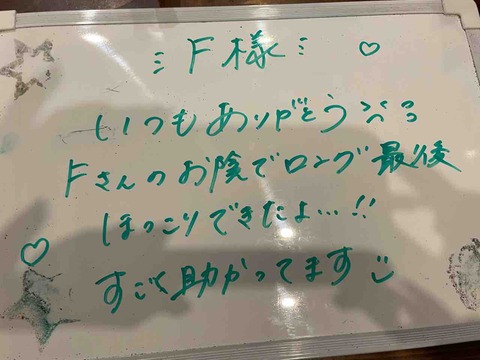 F様
いつもありがとう
Fさんのお陰でロング最後
ほっこりできたよ…!!
すごく助かってます